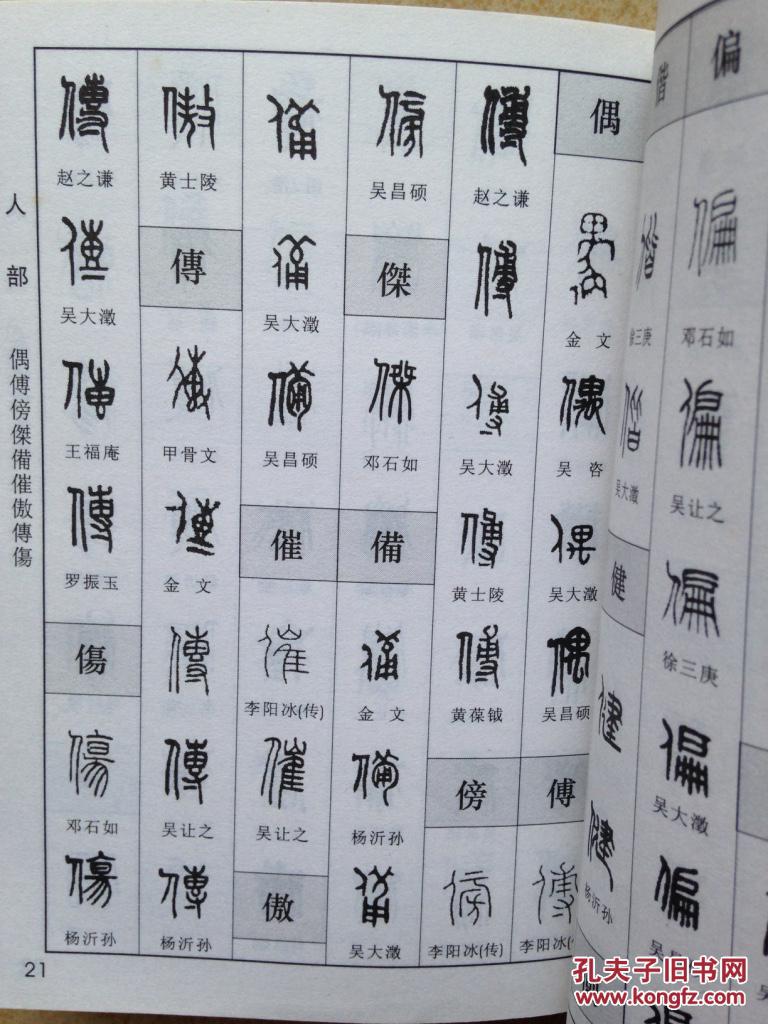 人部 偶傅傍傑備催傲傳傷
偶
金文
吴咨
吴大澂
吴昌硕
傅
李阳冰
赵之谦
吴大澂
黄士陵
黄葆钺
傍
李阳冰(传)
吴昌硕
傑
邓石如
備
金文
杨沂孙
吴大澂
吴大澂
吴昌硕
催
李阳冰(传)
吴让之
傲
黄士陵
傳
甲骨文
金文
吴让之
杨沂孙
赵之谦
吴大澂
王福庵
罗振玉
傷
邓石如
杨沂孙
21
偏
邓石如
吴让之
徐三庚
吴大澂
偕
徐三庚
吴大澂
健
杨沂孙
孔夫子旧书网
www.kongfz.com